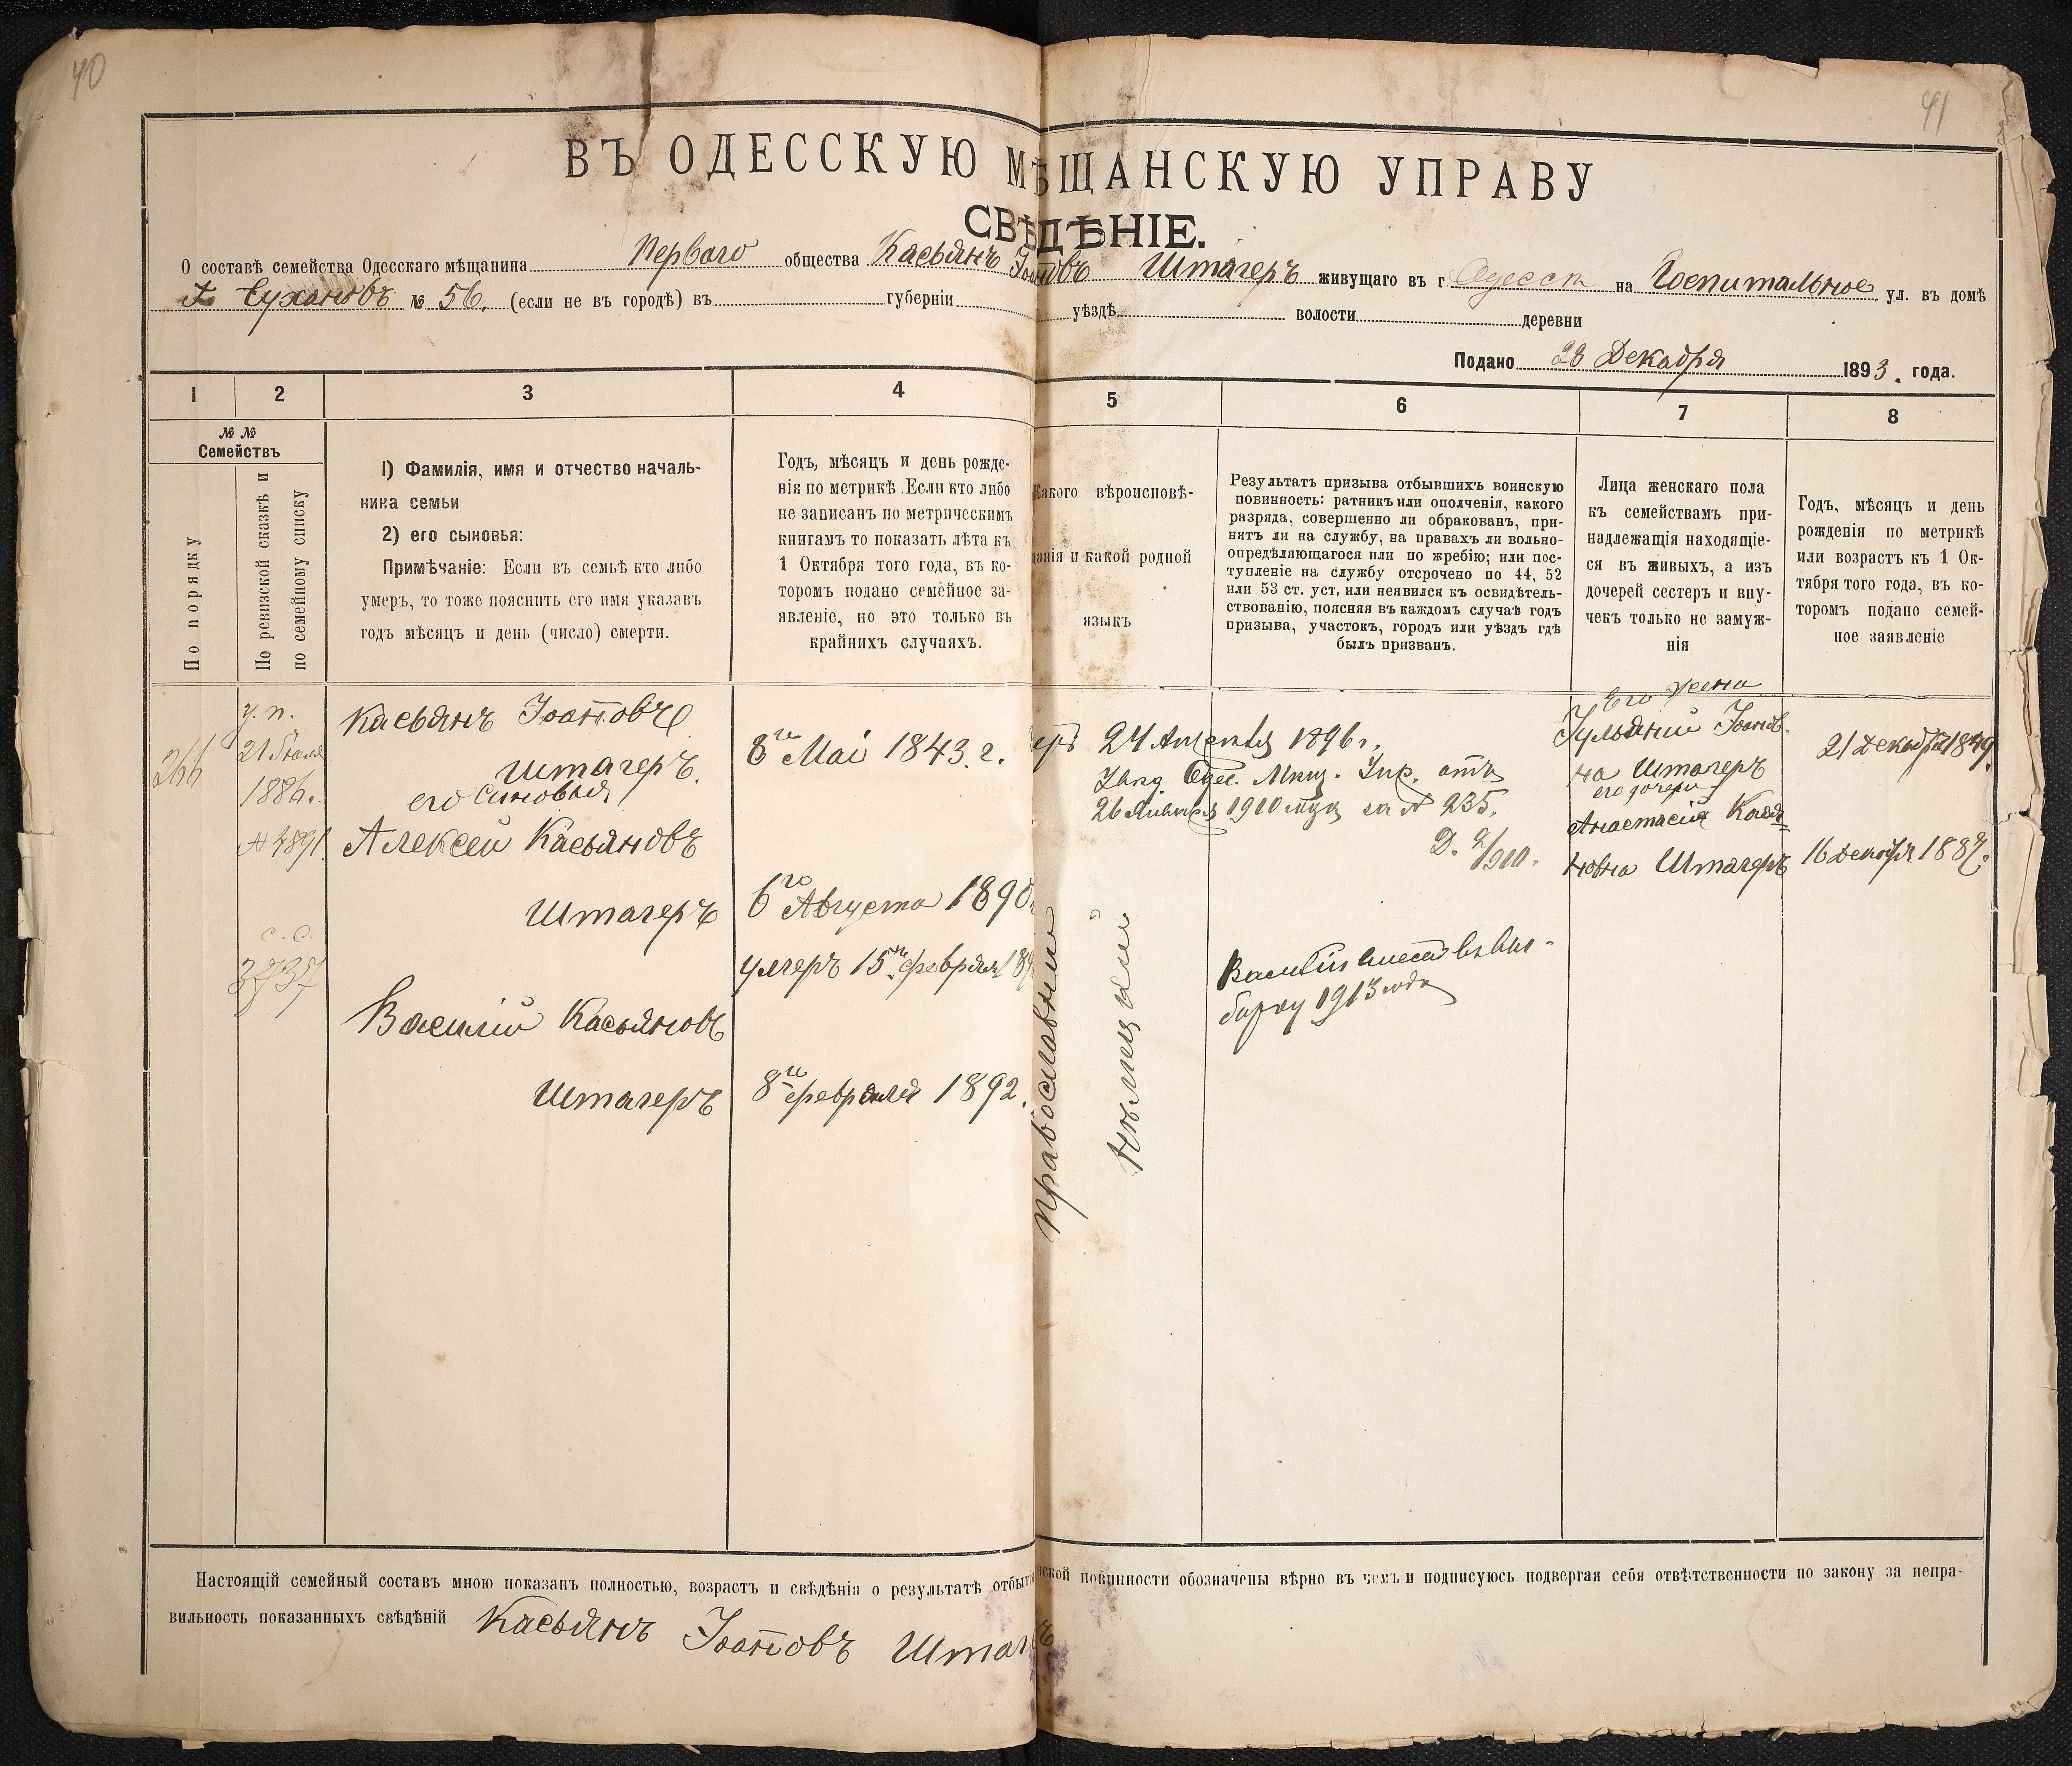 40
41
ВЪ ОДЕССКУЮ МѢЩАНСКУЮ УПРАВУ
СВѢДѢНІЕ.
О составѣ семейства Одесскаго мѣщанина Перваго общества Касьянъ Іоановъ Штагеръ живущаго въ г. Одесса на Госпитальное ул. въ домѣ
Г. Сухановъ № 56. (если не въ городѣ) въ губерніи уѣздѣ волости деревни
Подано 28 Декабря 1893. года.
1 2 3 4 5 6 7 8
№№
Семействъ
По порядку
По ревизской сказкѣ и
по семейному списку
1) Фамилія, имя и отчество началь-
ника семьи
2) его сыновья:
Примѣчаніе: Если въ семьѣ кто либо
умеръ, то тоже пояснить его имя указавъ
годъ мѣсяцъ и день (число) смерти.
Годъ, мѣсяцъ и день рожде-
нія по метрикѣ. Если кто либо
не записанъ по метрическимъ
книгамъ то показать лѣта къ
1 Октября того года, въ ко-
торомъ подано семейное за-
явленіе, но это только въ
крайнихъ случаяхъ.
Какого вѣроисповѣ-
данія и какой родной
языкъ
Результатъ призыва отбывшихъ воинскую
повинность: ратникъ или ополченія, какого
разряда, совершенно ли обракованъ, при-
нятъ ли на службу, на правахъ ли вольно-
опредѣляющагося или по жребію; или пос-
тупленіе на службу отсрочено по 44, 52
или 53 ст. уст, или неявился къ освидѣтель-
ствованію, поясняя въ каждомъ случаѣ годъ
призыва, участокъ, городъ или уѣздъ гдѣ
былъ призванъ.
Лица женскаго пола
къ семействамъ при-
надлежащія находящіе-
ся въ живыхъ, а изъ
дочерей сестеръ и вну-
чекъ только не замуж-
нія
Годъ, мѣсяцъ и день
рожденія по метрикѣ
или возрастъ къ 1 Ок-
тября того года, въ ко-
торомъ подано семей-
ное заявленіе
266
у. п.
21 Іюля
1886г.
№ 4891
с. с.
3737
Касьянъ Іоановъ
Штагеръ.
его Сыновья
Алексей Касьяновъ
Штагеръ
Василій Касьяновъ
Штагеръ
8го Маі 1843. г.
6го Августа 1890
умеръ 15го февраля 189
8го февраля 1892.
православный
нѣмецкій
24 1896 г.
Одес. Мѣщ. Упр. отъ
26 Января 1910 года за № 235.
Василій внесенъ въ вы-
борку 1913 года
Его жена
Іульянии Іоанов-
на Штагеръ
его дочери
Анастасія Касья-
новна Штагеръ
21 декабря 1849.
16 декабря 1887.
Настоящій семейный составъ мною показанъ полностью, возрастъ и свѣдѣнія о результатѣ отбытія нской повинности обозначены вѣрно въ чемъ и подписуюсь подвергая себя отвѣтственности по закону за непра-
вильность показанныхъ свѣдѣній Касьянъ Іоановъ Штагеръ